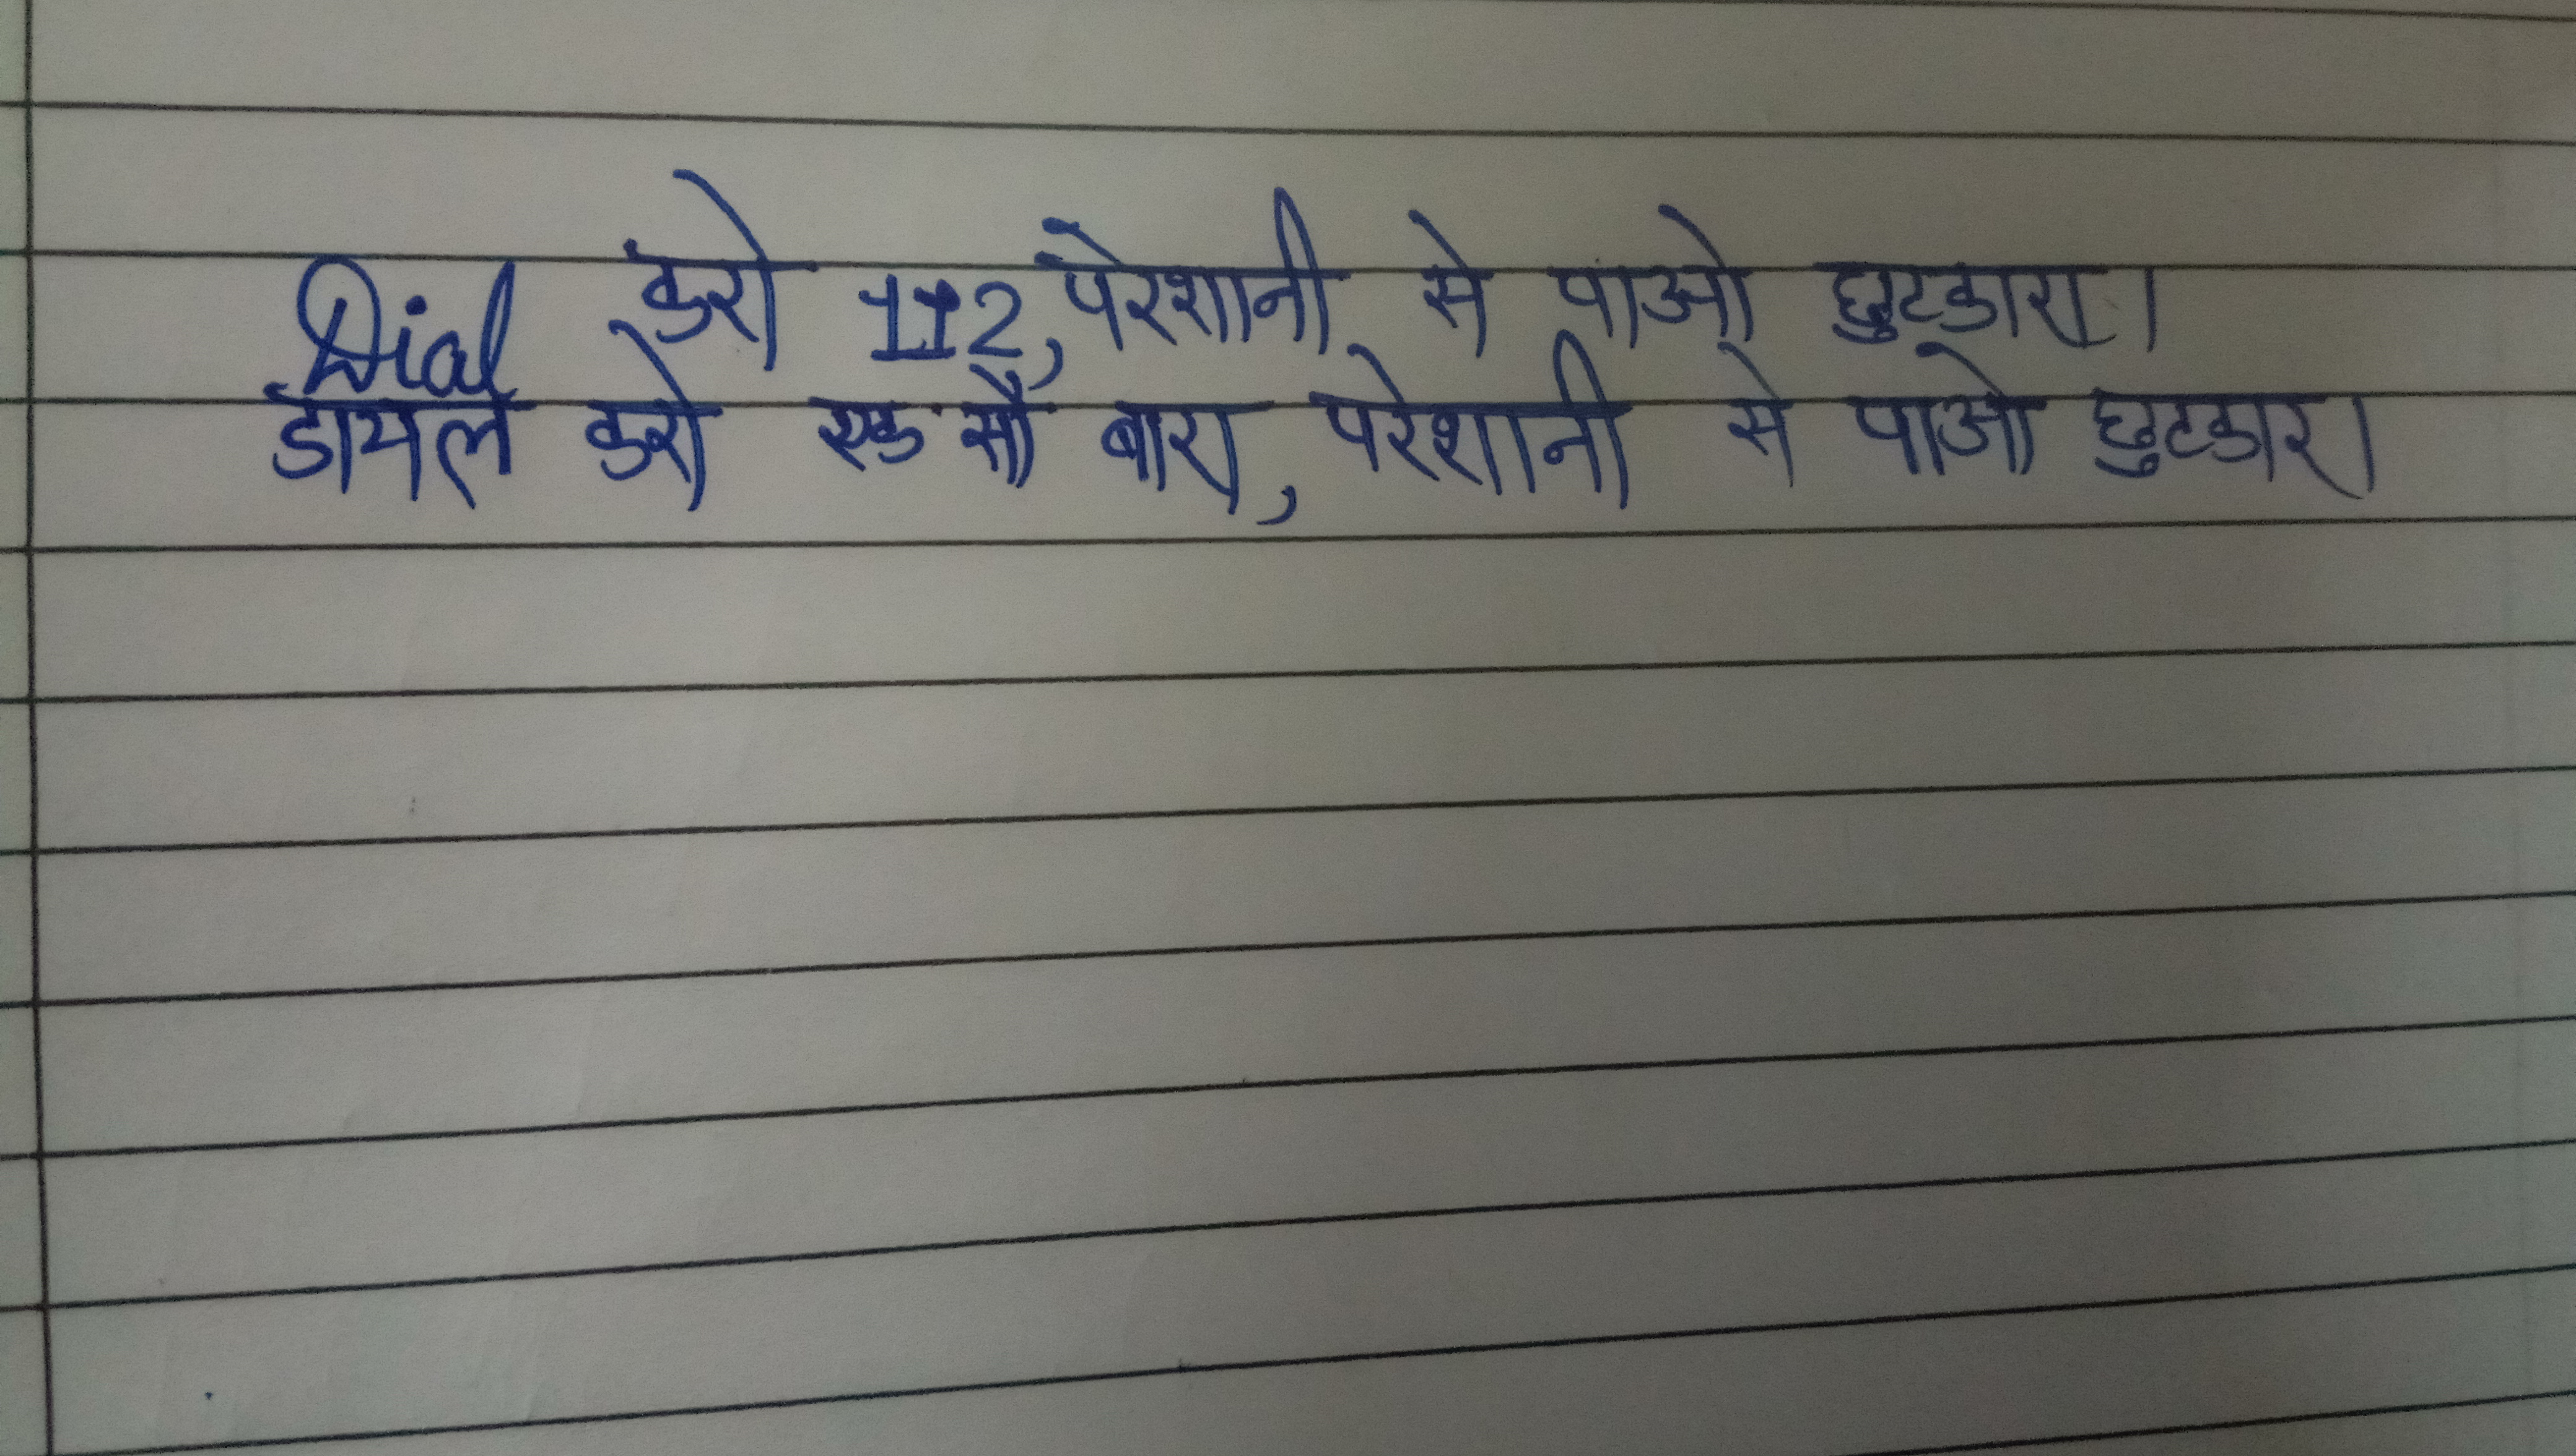 Dial करो 112, परेशानी से पाओ छुटकारा।
डायल करो एक सौ बारा, परेशानी से पाओ छुटकारा